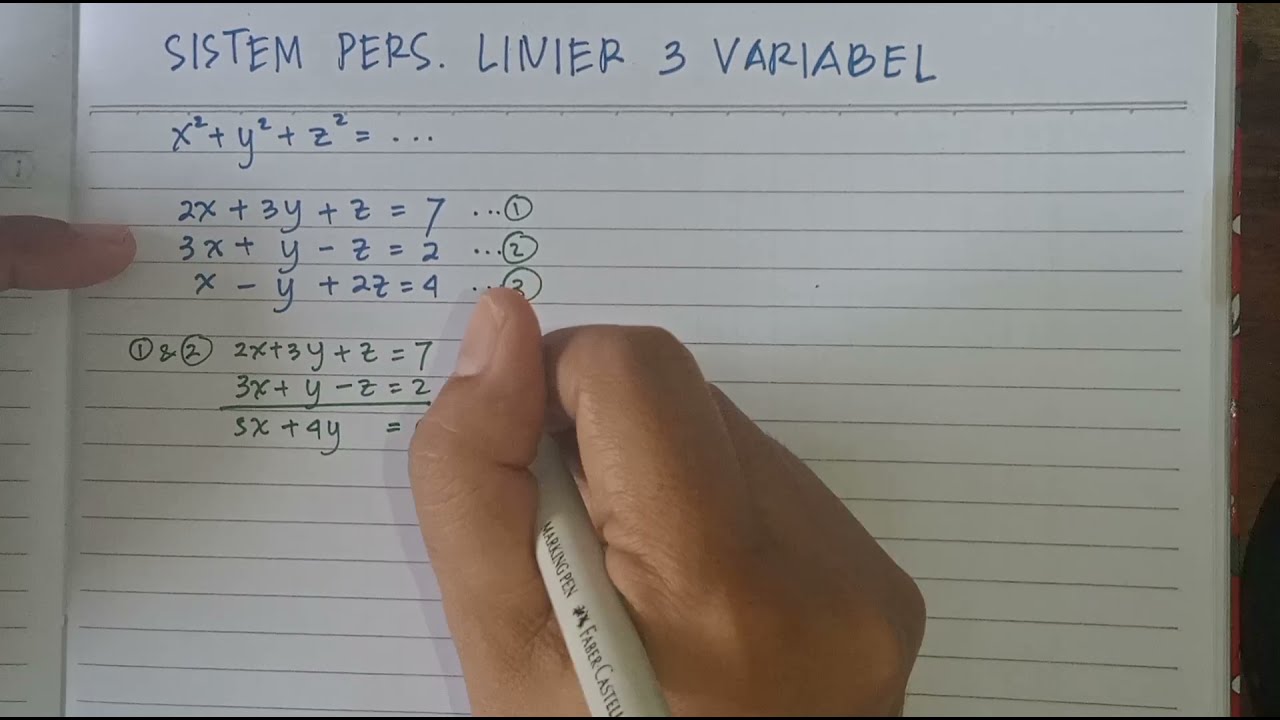 SISTEM PERS. LINIER 3 VARIABEL
x² + y² + z² = ...
2x + 3y + z = 7 ...①
3x + y - z = 2 ...②
x - y + 2z = 4 ...③
① & ② 2x + 3y + z = 7
3x + y - z = 2
5x + 4y =
MARKING PEN FABER CASTELL